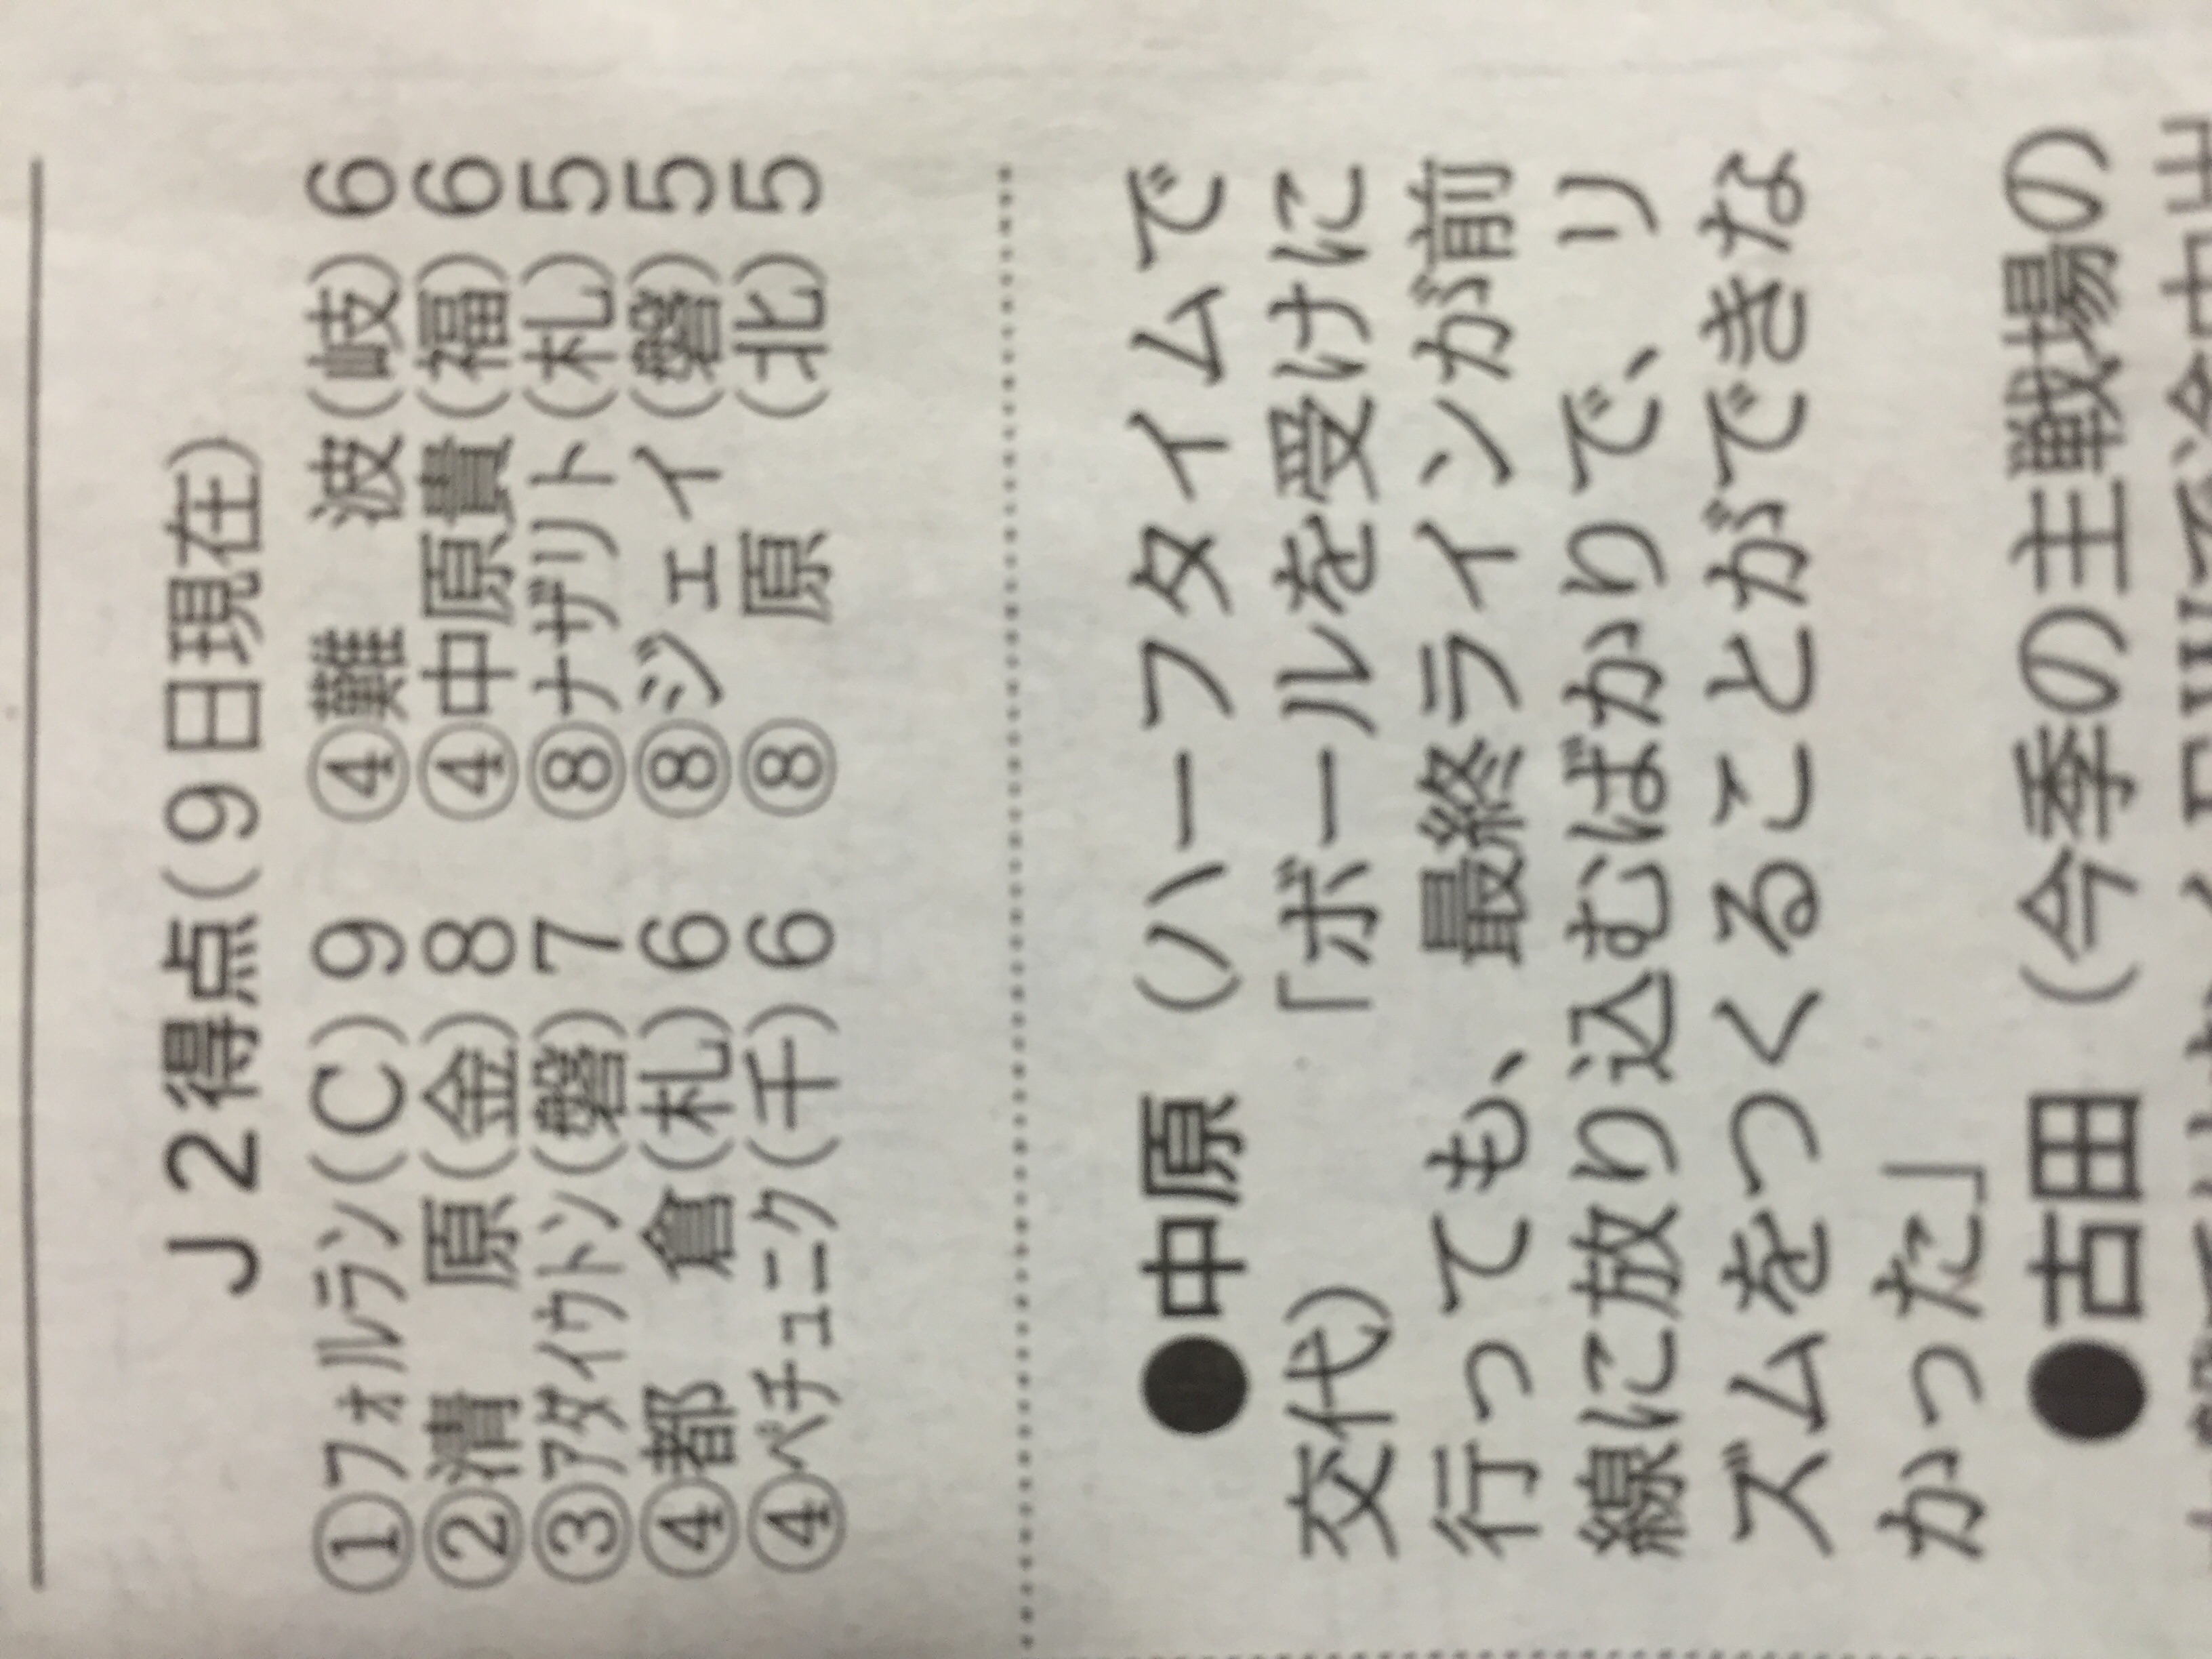 J2得点(9日現在)
①フォルラン(C)9 ④難 波(岐)6
②清 原(金)8 ④中原貴(福)6
③アダイウトン(磐)7 ⑧ナザリト(札)5
④都 倉(札)6 ⑧ジェイ(磐)5
④ペチュニク(千)6 ⑧ 原 (北)5
●中原(ハーフタイムで
交代)「ボールを受けに
行っても、最終ラインが前
線に放り込むばかりで、リ
ズムをつくることができな
かった」
●古田(今季の主戦場の